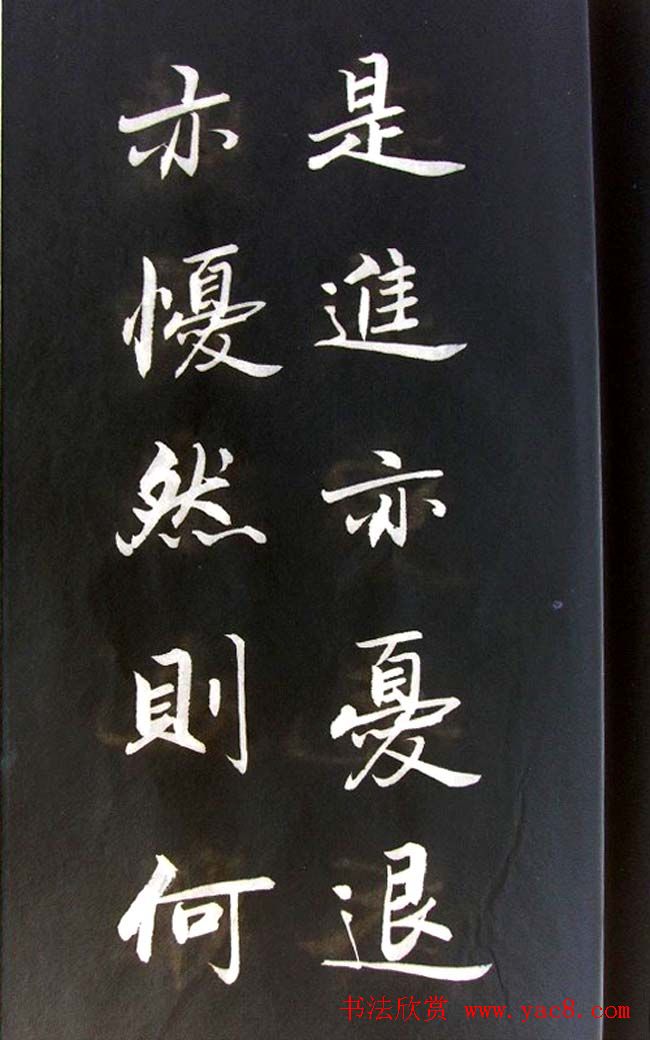 是進亦憂退
亦懮然則何
书法欣赏 www.yac8.com